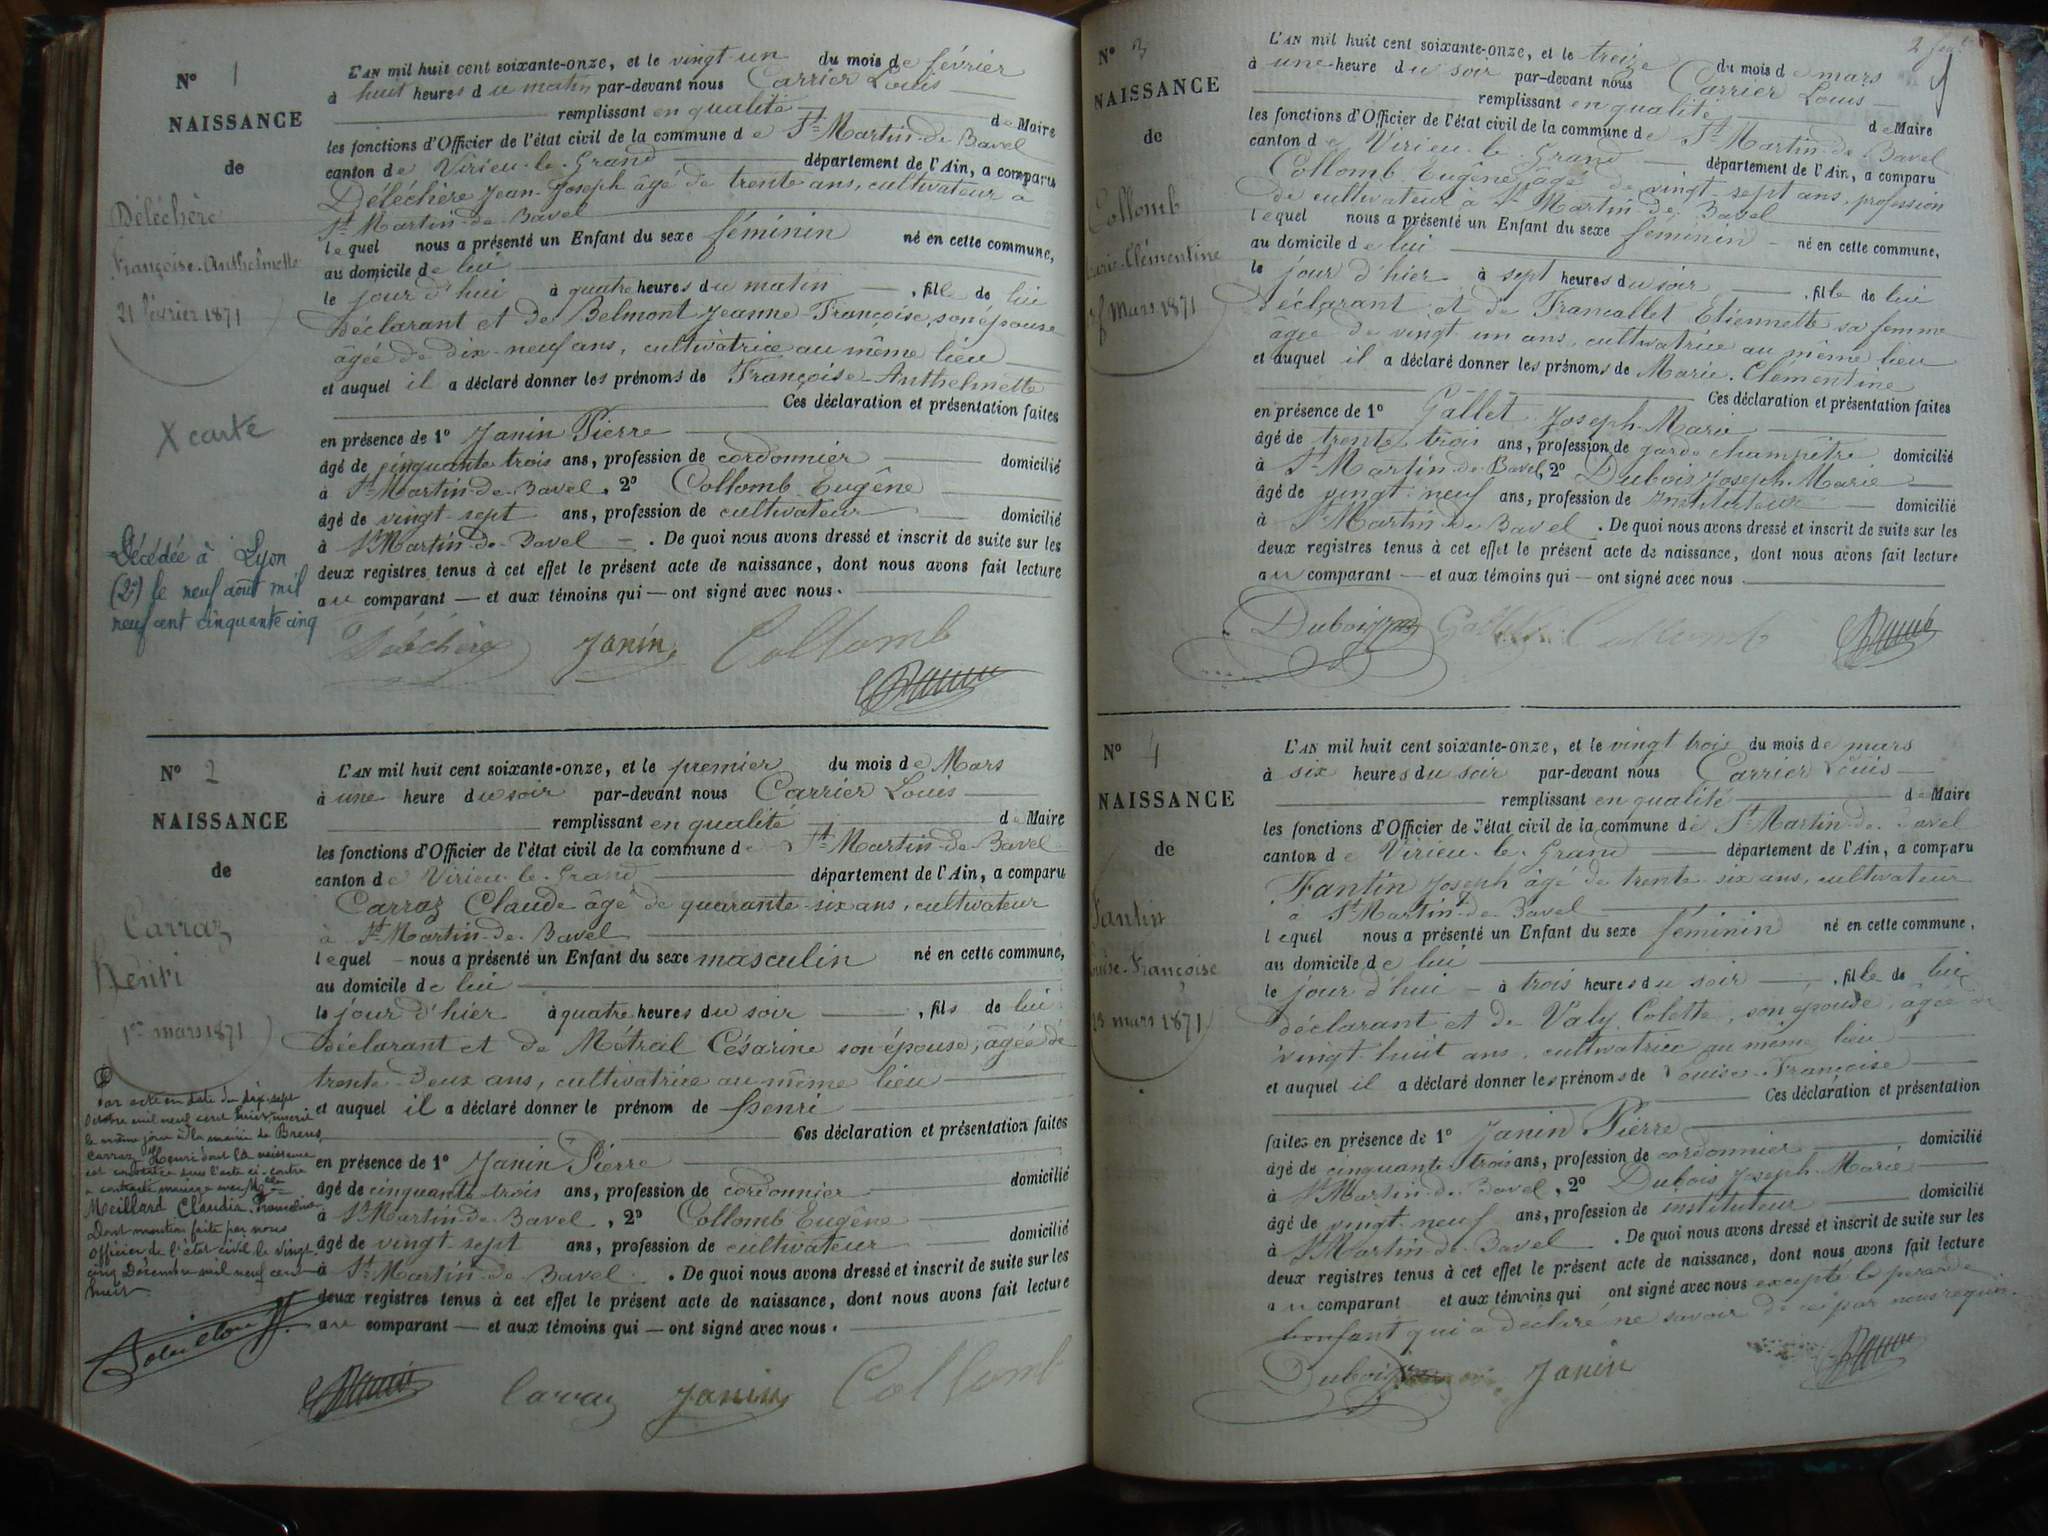 N° 1
NAISSANCE
de
Déléchère
Françoise-Anthelmette
21 février 1871
X carte
Décédée à Lyon
(2e) le neuf août mil
neuf cent cinquante cinq
L'AN mil huit cent soixante-onze, et le vingt-un du mois de février
à huit heures du matin par-devant nous Carrier Louis
remplissant en qualité de Maire
les fonctions d'Officier de l'état civil de la commune de St-Martin-de-Bavel
canton de Virieu-le-Grand département de l'Ain, a comparu
Déléchère Jean-Joseph âgé de trente ans, cultivateur à
St-Martin-de-Bavel
lequel nous a présenté un Enfant du sexe féminin né en cette commune,
au domicile de lui
le jour d'hui à quatre heures du matin, fille de lui
déclarant et de Belmont Jeanne-Françoise, son épouse
âgée de dix-neuf ans, cultivatrice au même lieu
et auquel il a déclaré donner les prénoms de Françoise-Anthelmette
Ces déclaration et présentation faites
en présence de 1° Janin Pierre
âgé de cinquante trois ans, profession de cordonnier domicilié
à St-Martin-de-Bavel, 2° Collomb Eugêne
âgé de vingt-sept ans, profession de cultivateur domicilié
à St-Martin-de-Bavel. De quoi nous avons dressé et inscrit de suite sur les
deux registres tenus à cet effet le présent acte de naissance, dont nous avons fait lecture
au comparant — et aux témoins qui — ont signé avec nous.
Janin Collomb
N° 2
NAISSANCE
de
Carraz
Henri
1er mars 1871
Par acte en date du dix-sept
Octobre mil neuf cent huit, inscrit
le même jour à la mairie de Brens,
Carraz Henri dont la naissance
est constatée dans l'acte ci-contre
a contracté mariage avec Melle
Meillard Claudia
Dont mention faite par nous
Officier de l'état civil le vingt-
cinq Décembre mil neuf cent
huit
L'AN mil huit cent soixante-onze, et le premier du mois de Mars
à une heure du soir par-devant nous Carrier Louis
remplissant en qualité de Maire
les fonctions d'Officier de l'état civil de la commune de St-Martin-de-Bavel
canton de Virieu-le-Grand département de l'Ain, a comparu
Carraz Claude âgé de quarante-six ans, cultivateur
à St-Martin-de-Bavel
lequel nous a présenté un Enfant du sexe masculin né en cette commune,
au domicile de lui
le jour d'hier à quatre heures du soir, fils de lui
déclarant et de Métral Césarine son épouse, âgée de
trente-deux ans, cultivatrice au même lieu
et auquel il a déclaré donner le prénom de Henri
Ces déclaration et présentation faites
en présence de 1° Janin Pierre
âgé de cinquante trois ans, profession de cordonnier domicilié
à St-Martin-de-Bavel, 2° Collomb Eugêne
âgé de vingt-sept ans, profession de cultivateur domicilié
à St-Martin-de-Bavel. De quoi nous avons dressé et inscrit de suite sur les
deux registres tenus à cet effet le présent acte de naissance, dont nous avons fait lecture
au comparant — et aux témoins qui — ont signé avec nous.
Carraz Janin Collomb
N° 3
NAISSANCE
de
Collomb
Marie-Clémentine
Mars 1871
L'AN mil huit cent soixante-onze, et le treize du mois de mars
à une heure du soir par-devant nous Carrier Louis
remplissant en qualité de Maire
les fonctions d'Officier de l'état civil de la commune de St-Martin-de-Bavel
canton de Virieu-le-Grand département de l'Ain, a comparu
Collomb Eugêne, âgé de vingt-sept ans, profession
de cultivateur à St-Martin-de-Bavel
lequel nous a présenté un Enfant du sexe féminin né en cette commune,
au domicile de lui
le jour d'hier à sept heures du soir, fille de lui
déclarant et de Francallet Etiennette sa femme
âgée de vingt-un ans, cultivatrice au même lieu
et auquel il a déclaré donner les prénoms de Marie-Clémentine
Ces déclaration et présentation faites
en présence de 1° Gallet Joseph-Marie
âgé de trente-trois ans, profession de garde champêtre domicilié
à St-Martin-de-Bavel, 2° Dubois Joseph-Marie
âgé de vingt-neuf ans, profession de Instituteur domicilié
à St-Martin-de-Bavel. De quoi nous avons dressé et inscrit de suite sur les
deux registres tenus à cet effet le présent acte de naissance, dont nous avons fait lecture
au comparant — et aux témoins qui — ont signé avec nous.
Dubois Collomb
N° 4
NAISSANCE
de
Fantin
Louise-Françoise
23 mars 1871
L'AN mil huit cent soixante-onze, et le vingt trois du mois de mars
à six heures du soir par-devant nous Carrier Louis
remplissant en qualité de Maire
les fonctions d'Officier de l'état civil de la commune de St-Martin-de-Bavel
canton de Virieu-le-Grand département de l'Ain, a comparu
Fantin Joseph âgé de trente-six ans, cultivateur
à St-Martin-de-Bavel
lequel nous a présenté un Enfant du sexe féminin né en cette commune,
au domicile de lui
le jour d'hui à trois heures du soir, fille de lui
déclarant et de Valy Colette, son épouse, âgée de
vingt-huit ans, cultivatrice au même lieu
et auquel il a déclaré donner les prénoms de Louise-Françoise
Ces déclaration et présentation
faites en présence de 1° Janin Pierre domicilié
âgé de cinquante trois ans, profession de cordonnier
à St-Martin-de-Bavel, 2° Dubois Joseph-Marie
âgé de vingt-neuf ans, profession de instituteur domicilié
à St-Martin-de-Bavel. De quoi nous avons dressé et inscrit de suite sur les
deux registres tenus à cet effet le présent acte de naissance, dont nous avons fait lecture
au comparant et aux témoins qui ont signé avec nous excepté le père de
l'enfant qui a déclaré ne savoir de ce par nous requis.
Dubois Janin